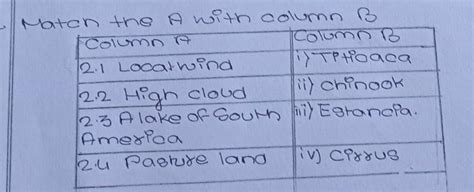 Match the A with column B
Column A Column B
2.1 Local wind i) Titicaca
2.2 High cloud ii) Chinook
2.3 A lake of South iii) Estancia.
America
2.4 Pasture land iv) Cirrus